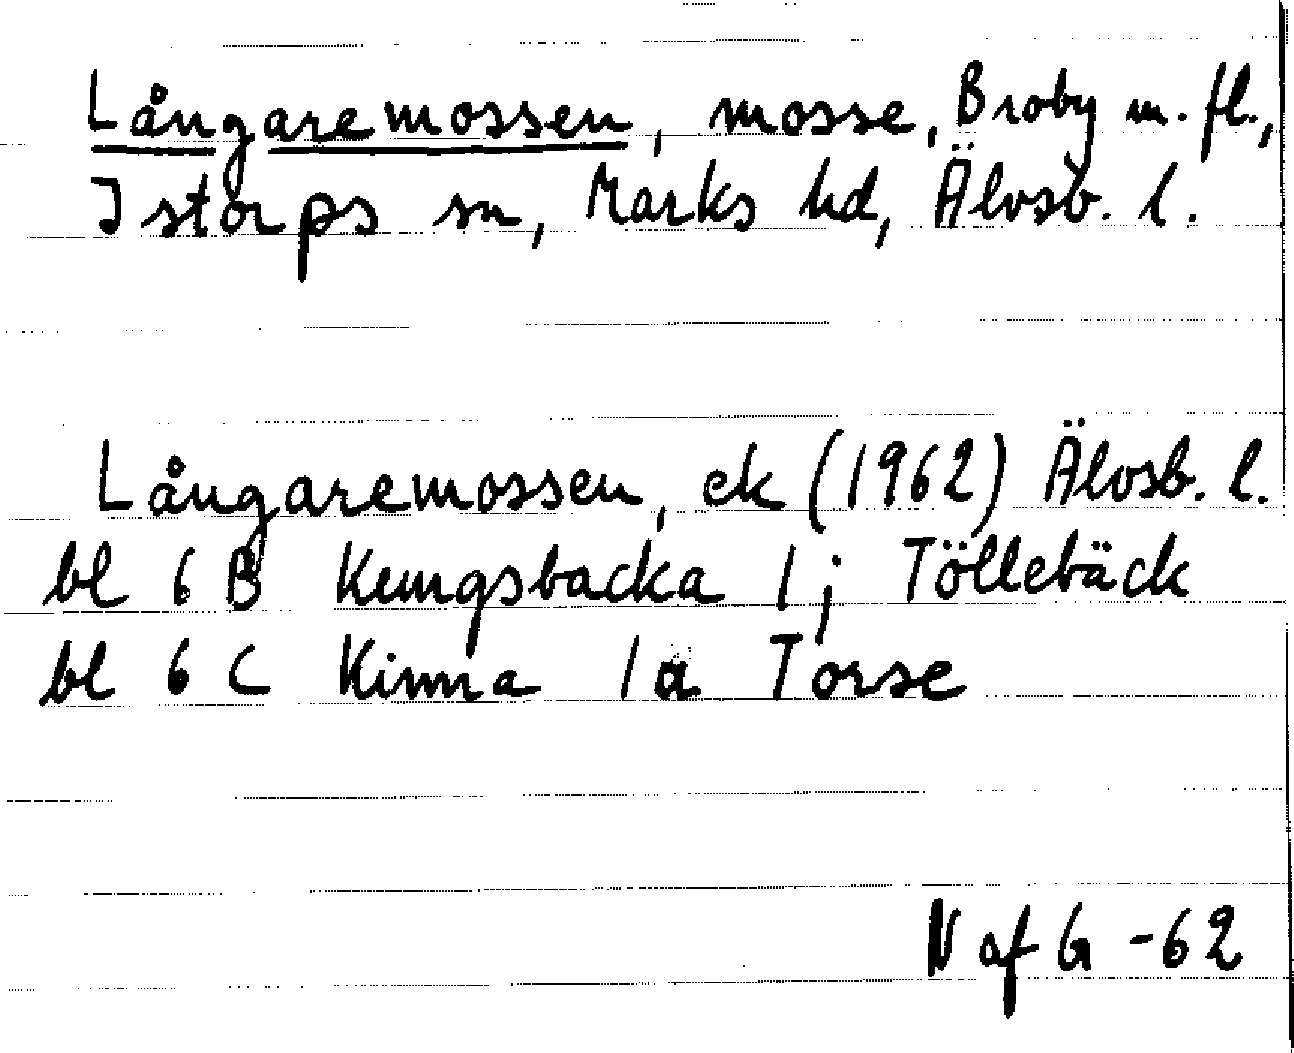 Långaremossen, mosse, Broby m. fl.,
Istorps sn, Marks hd, Älvsb. l.
Långaremossen, ek (1962) Älvsb. l.
bl 6 B Kungsbacka 1 j Töllebäck
bl 6 C Kinna 1 a Torse
N af G -62